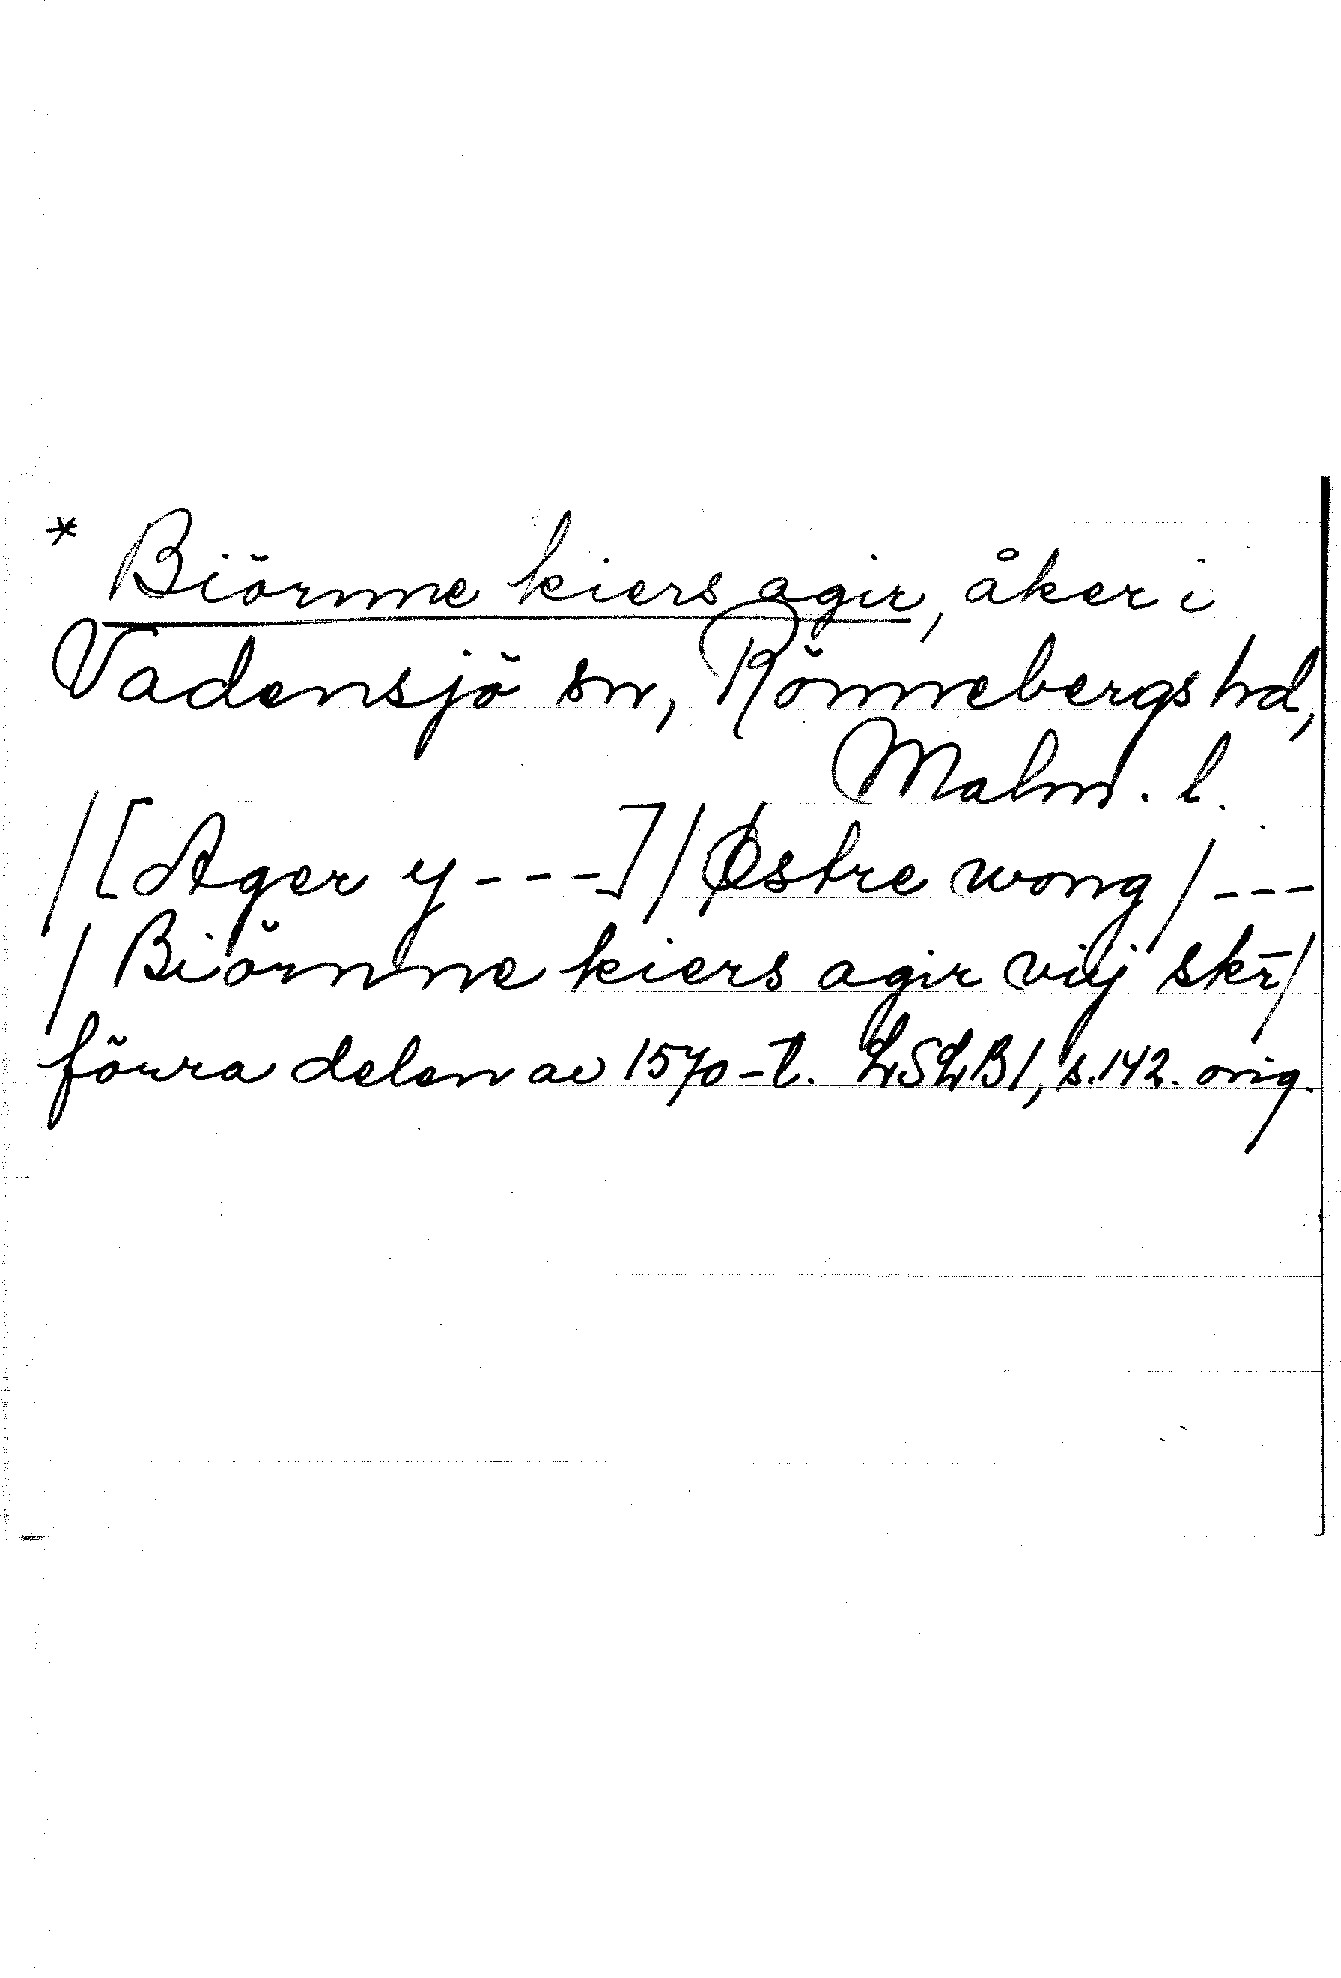 * Biörnne kiers agir, åker i
Vadensjö sn, Rönnebergs hd,
Malm. l.
/[Ager y ---]/Østre wong/---
/Biörnne kiers agir viij skr̄/
förra delen av 1570-t. LSLB1, s.142. orig.